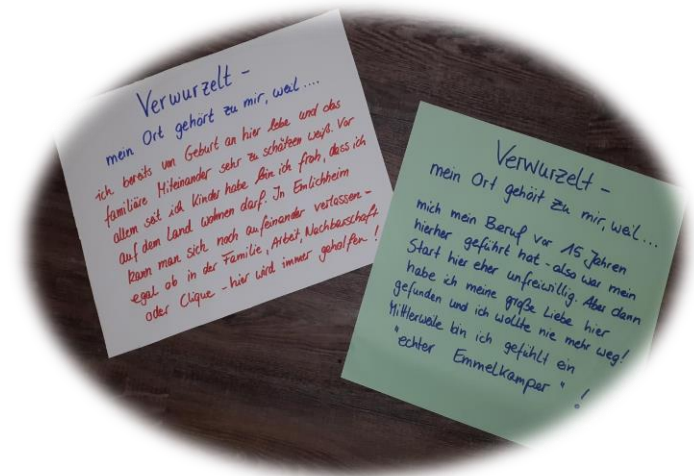 Verwurzelt -
mein Ort gehört zu mir, weil....
ich bereits von Geburt an hier lebe und das
familiäre Miteinander sehr zu schätzen weiß. Vor
allem seit ich Kinder habe bin ich froh, dass ich
auf dem Land wohnen darf. In Emlichheim
kann man sich noch aufeinander verlassen -
egal ob in der Familie, Arbeit, Nachbarschaft
oder Clique - hier wird immer geholfen!
Verwurzelt -
mein Ort gehört zu mir, weil...
mich mein Beruf vor 15 Jahren
hierher geführt hat - also war mein
Start hier eher unfreiwillig. Aber dann
habe ich meine große Liebe hier
gefunden und ich wollte nie mehr weg!
Mittlerweile bin ich gefühlt ein
"echter Emmelkamper"!